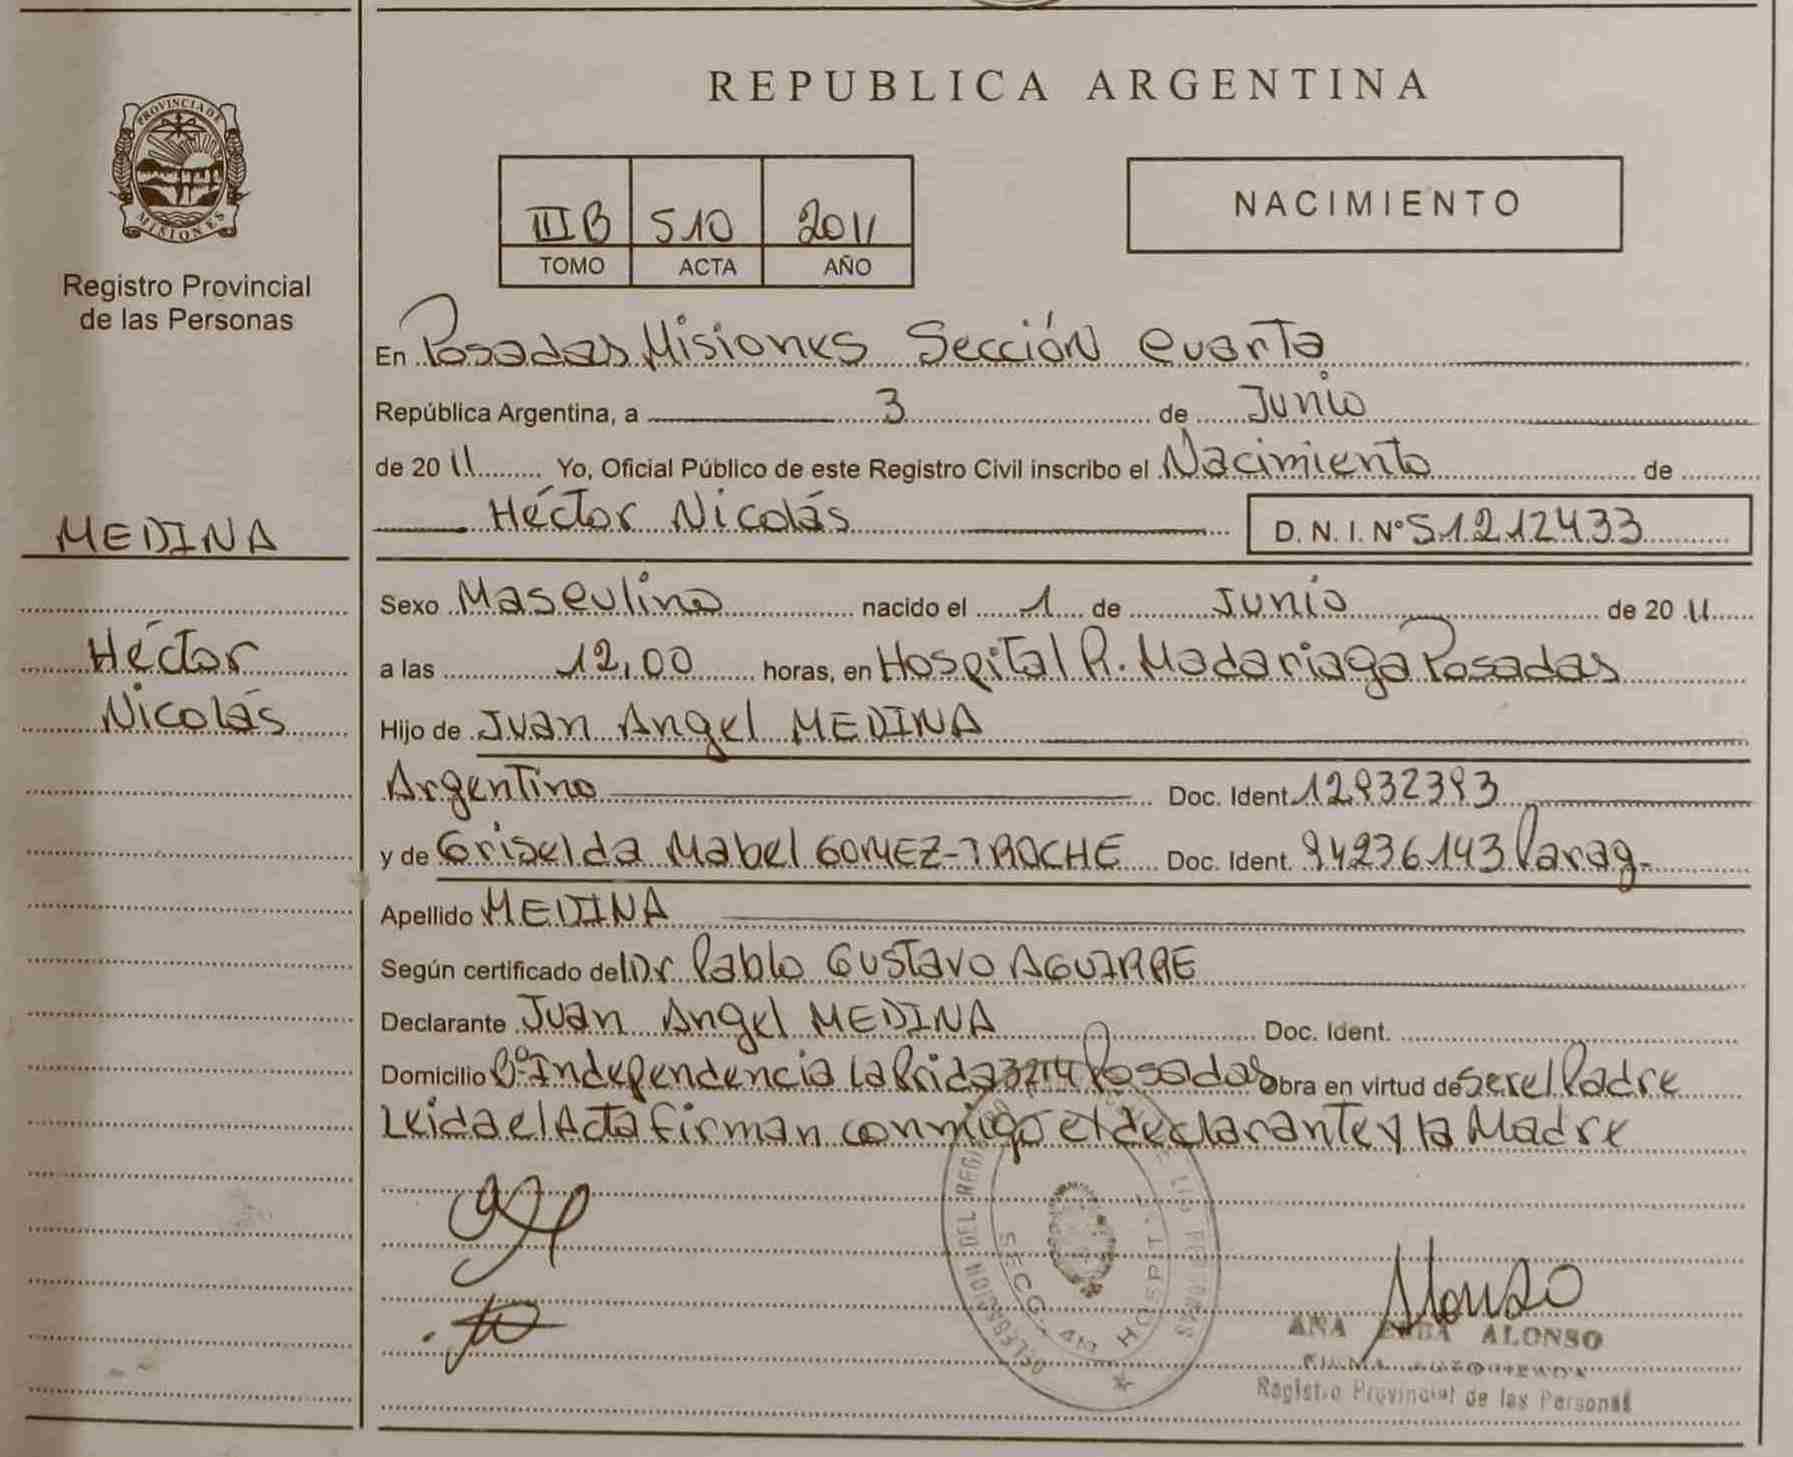 PROVINCIA DE
MISIONES
Registro Provincial
de las Personas
MEDINA
Héctor
Nicolás
REPUBLICA ARGENTINA
III B 510 2011
TOMO ACTA AÑO
NACIMIENTO
En Posadas Misiones Sección Cuarta
República Argentina, a 3 de Junio
de 2011 Yo, Oficial Público de este Registro Civil inscribo el Nacimiento de
Héctor Nicolás D. N. I. Nº 51212433
Sexo Masculino nacido el 1 de Junio de 2011
a las 12,00 horas, en Hospital R. Madariaga Posadas
Hijo de Juan Angel MEDINA
Argentino Doc. Ident. 12932393
y de Griselda Mabel GOMEZ-TROCHE Doc. Ident. 94236143 Parag.
Apellido MEDINA
Según certificado del Dr Pablo Gustavo AGUIRRE
Declarante Juan Angel MEDINA Doc. Ident.
Domicilio Bº Independencia La Prida 3214 Posadas Obra en virtud de ser el Padre
Leida el Acta firman conmigo el declarante y la Madre
DELEGACION DEL
SECC. 4ta HOSPIT.
Alonso
ANA ALONSO
Registro Provincial de las Personas